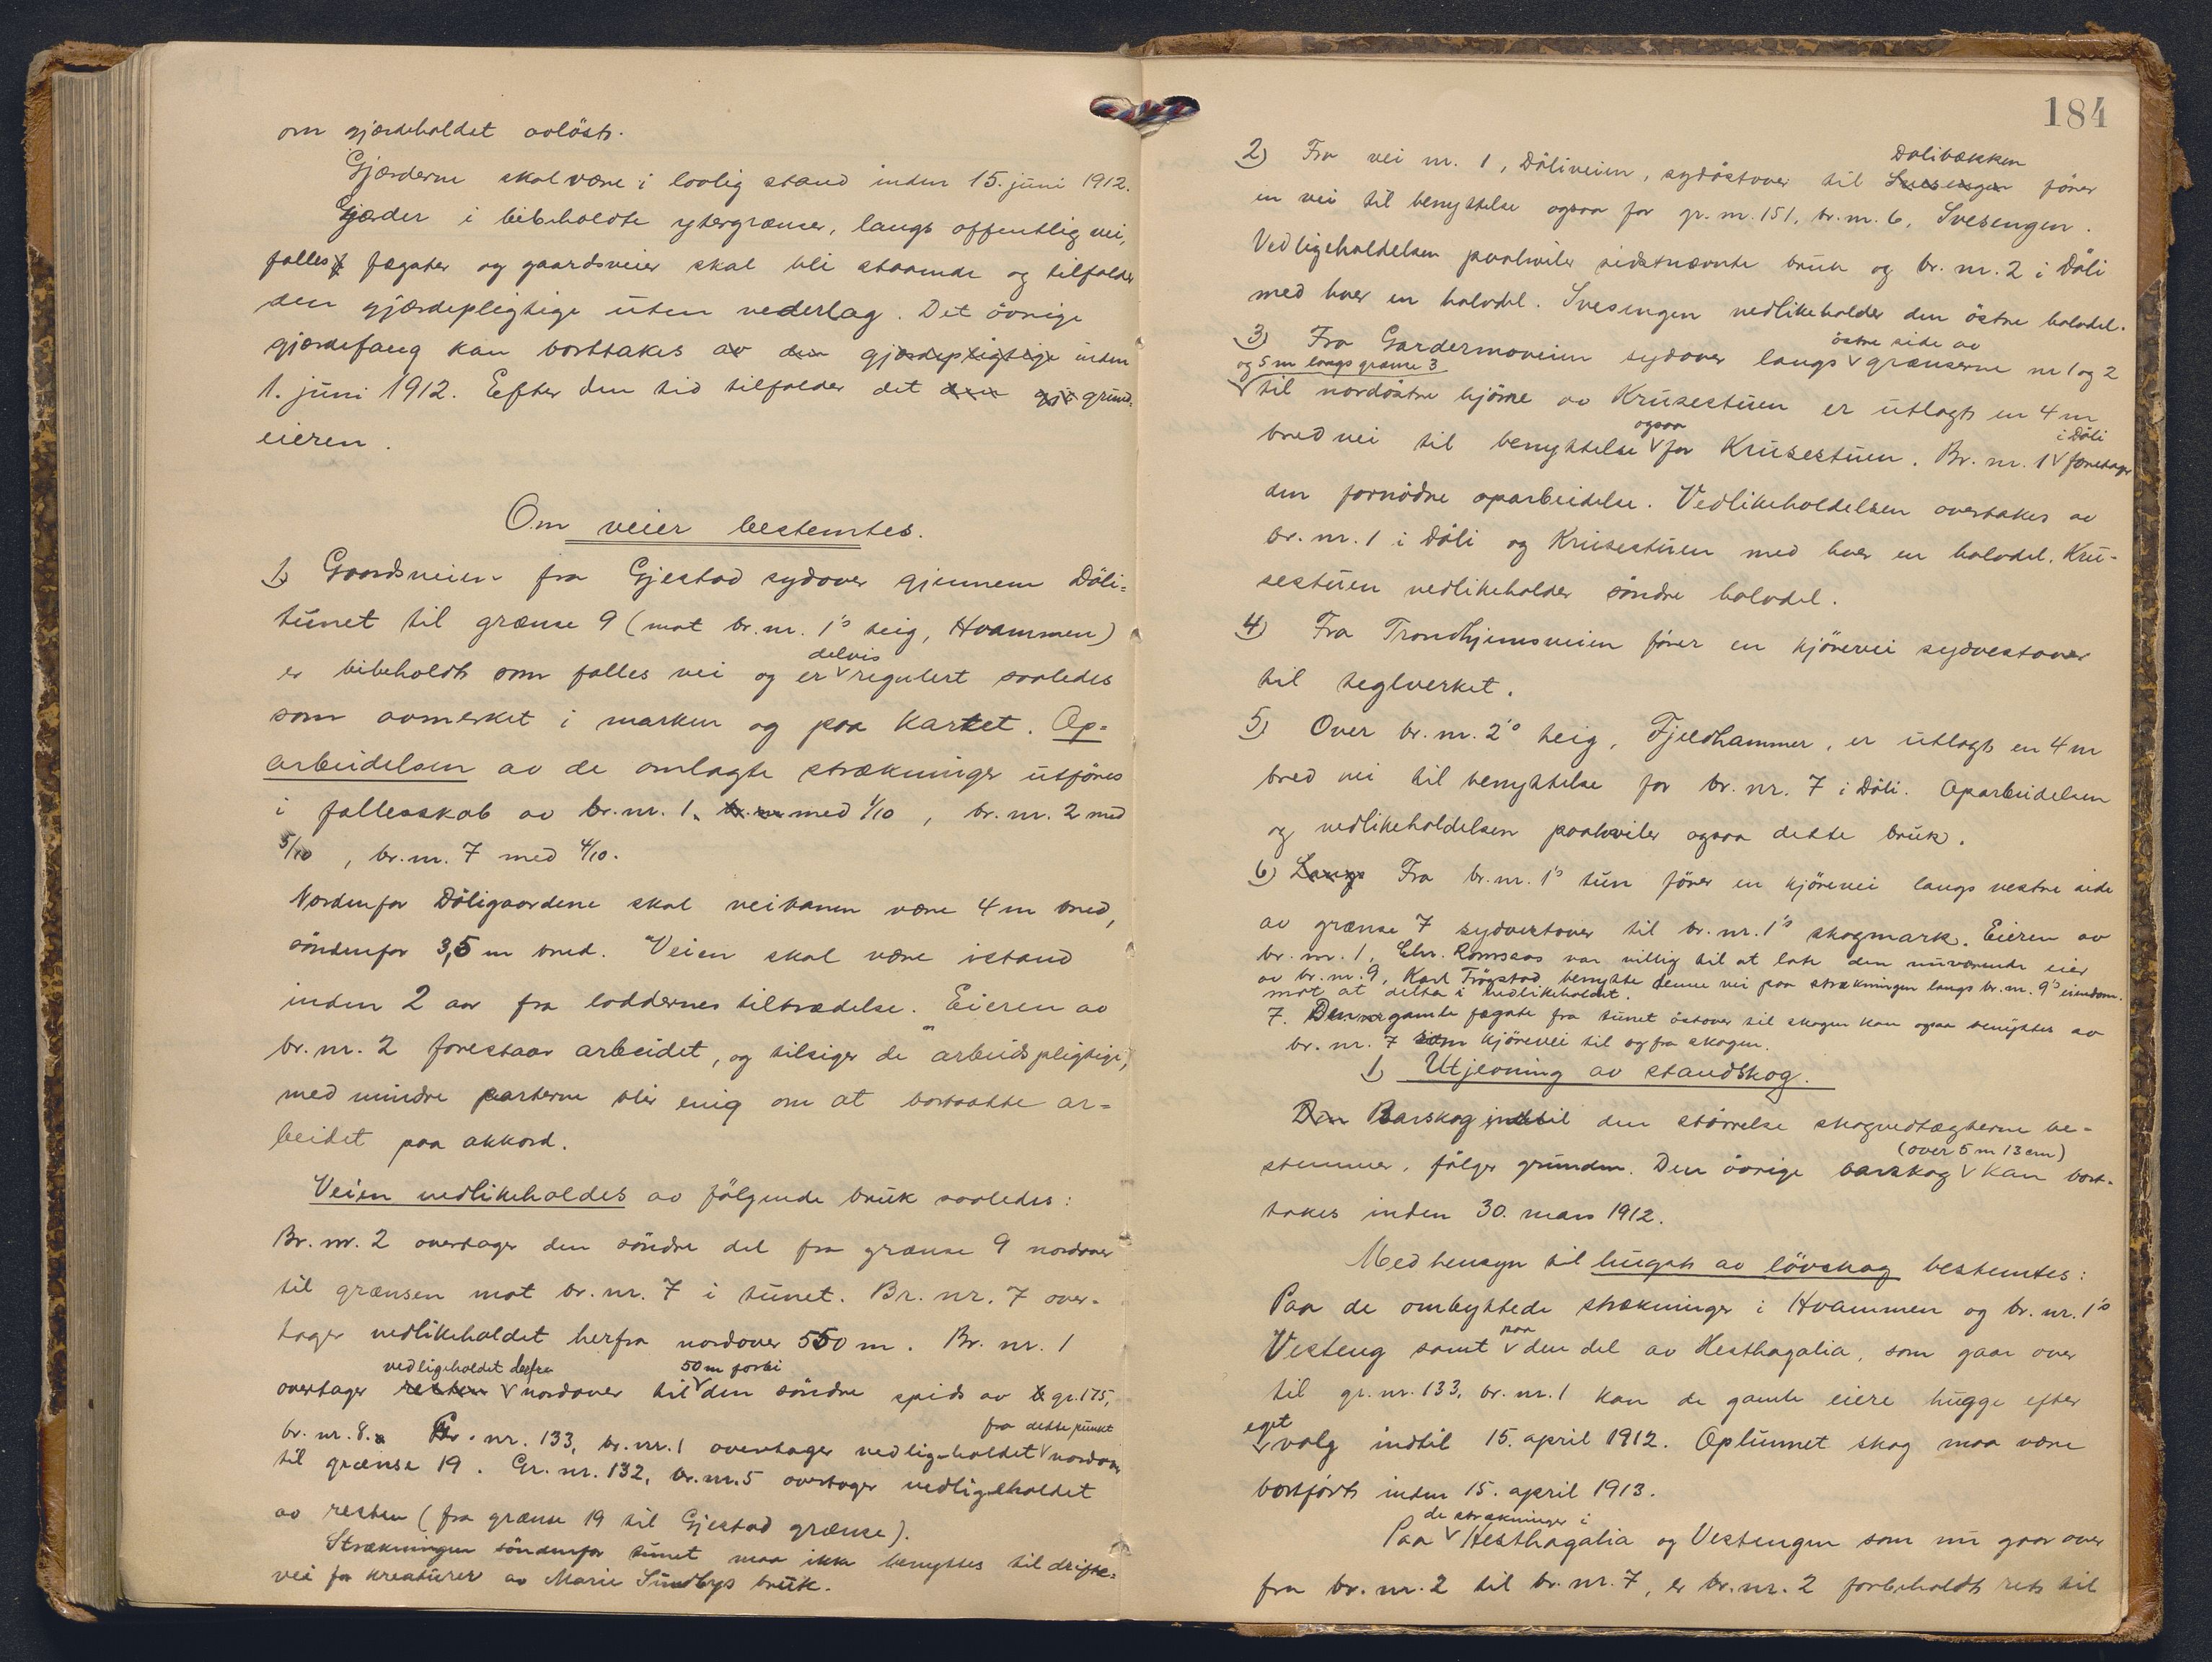 om gjærdeholdet avløst.
Gjærderne skal være i lovlig stand inden 15. juni 1912.
Gjærder i bibeholdte ytergrænser, langs offentlig vei,
fælles fægater og gaardsveier skal bli staaende og tilfalder
den gjærdepligtige uten vederlag. Det øvrige
gjærdefang kan borttakes av den gjærdepligtige inden
1. juni 1912. Efter den tid tilfalder det den gjæ grund-
eieren.
Om veier bestemtes.
1) Gaardsveien fra Gjestad sydover gjennem Døli-
tunet til grænse 9 (mot br.nr. 1's teig, Hvammen)
delvis
er bibeholdt som fælles vei og er regulert saaledes
som avmerket i marken og paa kartet. Op-
arbeidelsen av de omlagte strækninger utføres
i fællesskab av br.nr. 1. br. nr med 1/10, br. nr. 2 med
5/10, br.nr. 7 med 4/10.
Nordenfor Døligaardene skal veibanen være 4 m bred,
søndenfor 3,5 m bred. Veien skal være istand
inden 2 aar fra loddernes tiltrædelse. Eieren av
br.nr. 2 forestaar arbeidet, og tilsiger de arbeidspligtige,
med mindre parterne blir enig om at bortsætte ar-
beidet paa akkord.
Veien vedlikeholdes av følgende bruk saaledes:
Br. nr. 2 overtager den søndre del fra grænse 9 nordover
til grænsen mot br.nr. 7 i tunet. Br. nr. 7 over-
tager vedlikeholdet herfra nordover 550 m. Br. nr. 1
vedligeholdet derfra 50 m forbi
overtager resten nordover til den søndre spids av gr. 175,
fra dette punkt
br. nr. 8. Gr. nr. 133, br.nr. 1 overtager vedligeholdet nordover
til grænse 19. Gr. nr. 132, br.nr. 5 overtager vedligeholdet
av resten (fra grænse 19 til Gjestad grænse).
Strækningen søndenfor tunet maa ikke benyttes til drifte-
vei for kreaturer av Marie Sundbys bruk.
184
Dølibækken
2) Fra vei nr. 1, Døliveien, sydøstover til Svesengen fører
en vei til benyttelse ogsaa for gr. nr. 151, br. nr. 6, Svesengen.
Vedligeholdelsen paahviler sidstnævnte bruk og br. nr. 2 i Døli
med hver en halvdel. Svesengen vedlikeholder den østre halvdel.
østre side av
3) Fra Gardermoveien sydover langs grænserne nr 1 og 2
og 5 m langs grænse 3
til nordøstre hjørne av Krusestuen er utlagt en 4 m
ogsaa i Døli
bred vei til benyttelse for Krusestuen. Br. nr. 1 foretager
den fornødne oparbeidelse. Vedlikeholdelsen overtakes av
br. nr. 1 i Døli og Krusestuen med hver en halvdel. Kru-
sestuen vedlikeholder søndre halvdel.
4) Fra Trondhjemsveien fører en kjørevei sydvestover
til teglverket.
5) Over br. nr. 2's teig, Fjeldhammer, er utlagt en 4 m
bred vei til benyttelse for br. nr. 7 i Døli. Oparbeidelsen
og vedlikeholdelsen paahviler ogsaa dette bruk.
6) Langs Fra br.nr. 1's tun fører en kjørevei langs vestre side
av grænse 7 sydvestover til br. nr. 1's skogmark. Eieren av
br. nr. 1, Chr. Romsaas var villig til at late den nuværende eier
av br. nr. 9, Karl Frøgstad benytte denne vei paa strækningen langs br. nr. 9's eiendom.
mot at delta i vedlikeholdet.
7. Den gamle fægate fra tunet østover til skogen kan ogsaa benyttes av
br. nr. 7 som kjørevei til og fra skogen.
1) Utjevning av standskog.
Den Barskog indtil den størrelse skogvedtægterne be-
(over 5 m 13 cm)
stemmer, følger grunden. Den øvrige barskog kan bort-
takes inden 30. mars 1912.
Med hensyn til hugst av løvskog bestemtes:
Paa de ombyttede strækninger i Hvammen og br. nr. 1's
paa
Vesteng samt den del av Hesthagalia, som gaar over
til gr. nr. 133, br. nr. 1 kan de gamle eiere hugge efter
eget
valg indtil 15. april 1912. Oplunnet skog maa være
bortført inden 15. april 1913.
de strækninger i
Paa Hesthagalia og Vestengen som nu gaar over
fra br. nr. 2 til br. nr. 7, er br. nr. 2 forbeholdt ret til